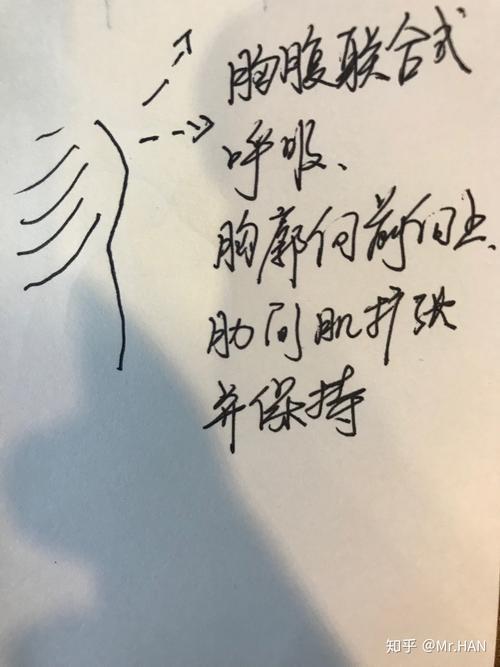 胸腹联合式
呼吸、
胸廓向前向上、
肋间肌扩张
并保持
知乎 @Mr.HAN